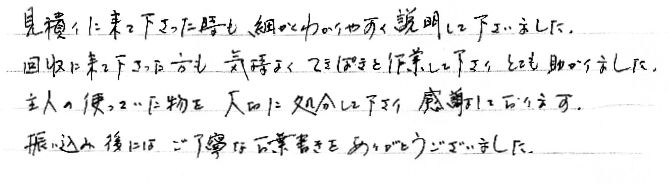 見積りに来て下さった時も 細かくわかりやすく説明して下さいました。
回収に来て下さった方も 気持よく てきぱきと作業して下さり とても助かりました。
主人の使っていた物を 大切に処分して下さり 感謝しております。
振り込み後には ご丁寧な葉書きを ありがとうございました。